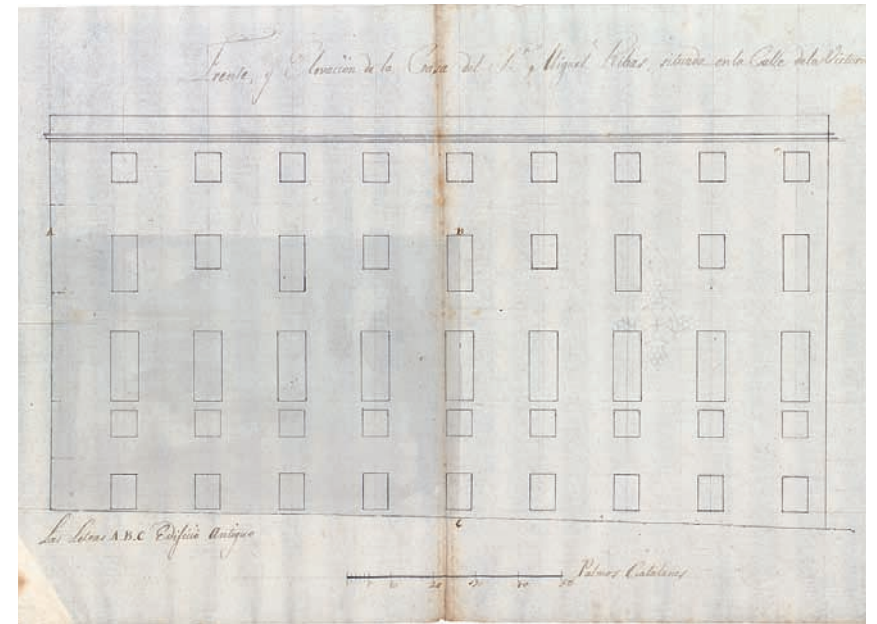 Frente, y Elevacion de la Casa del S.ʳ Miguel Ribas, situada en la Calle de la Victoria
A B
C
Las Letras A.B.C Edificio Antiguo
10 20 30 40 50 Palmos Catalanes